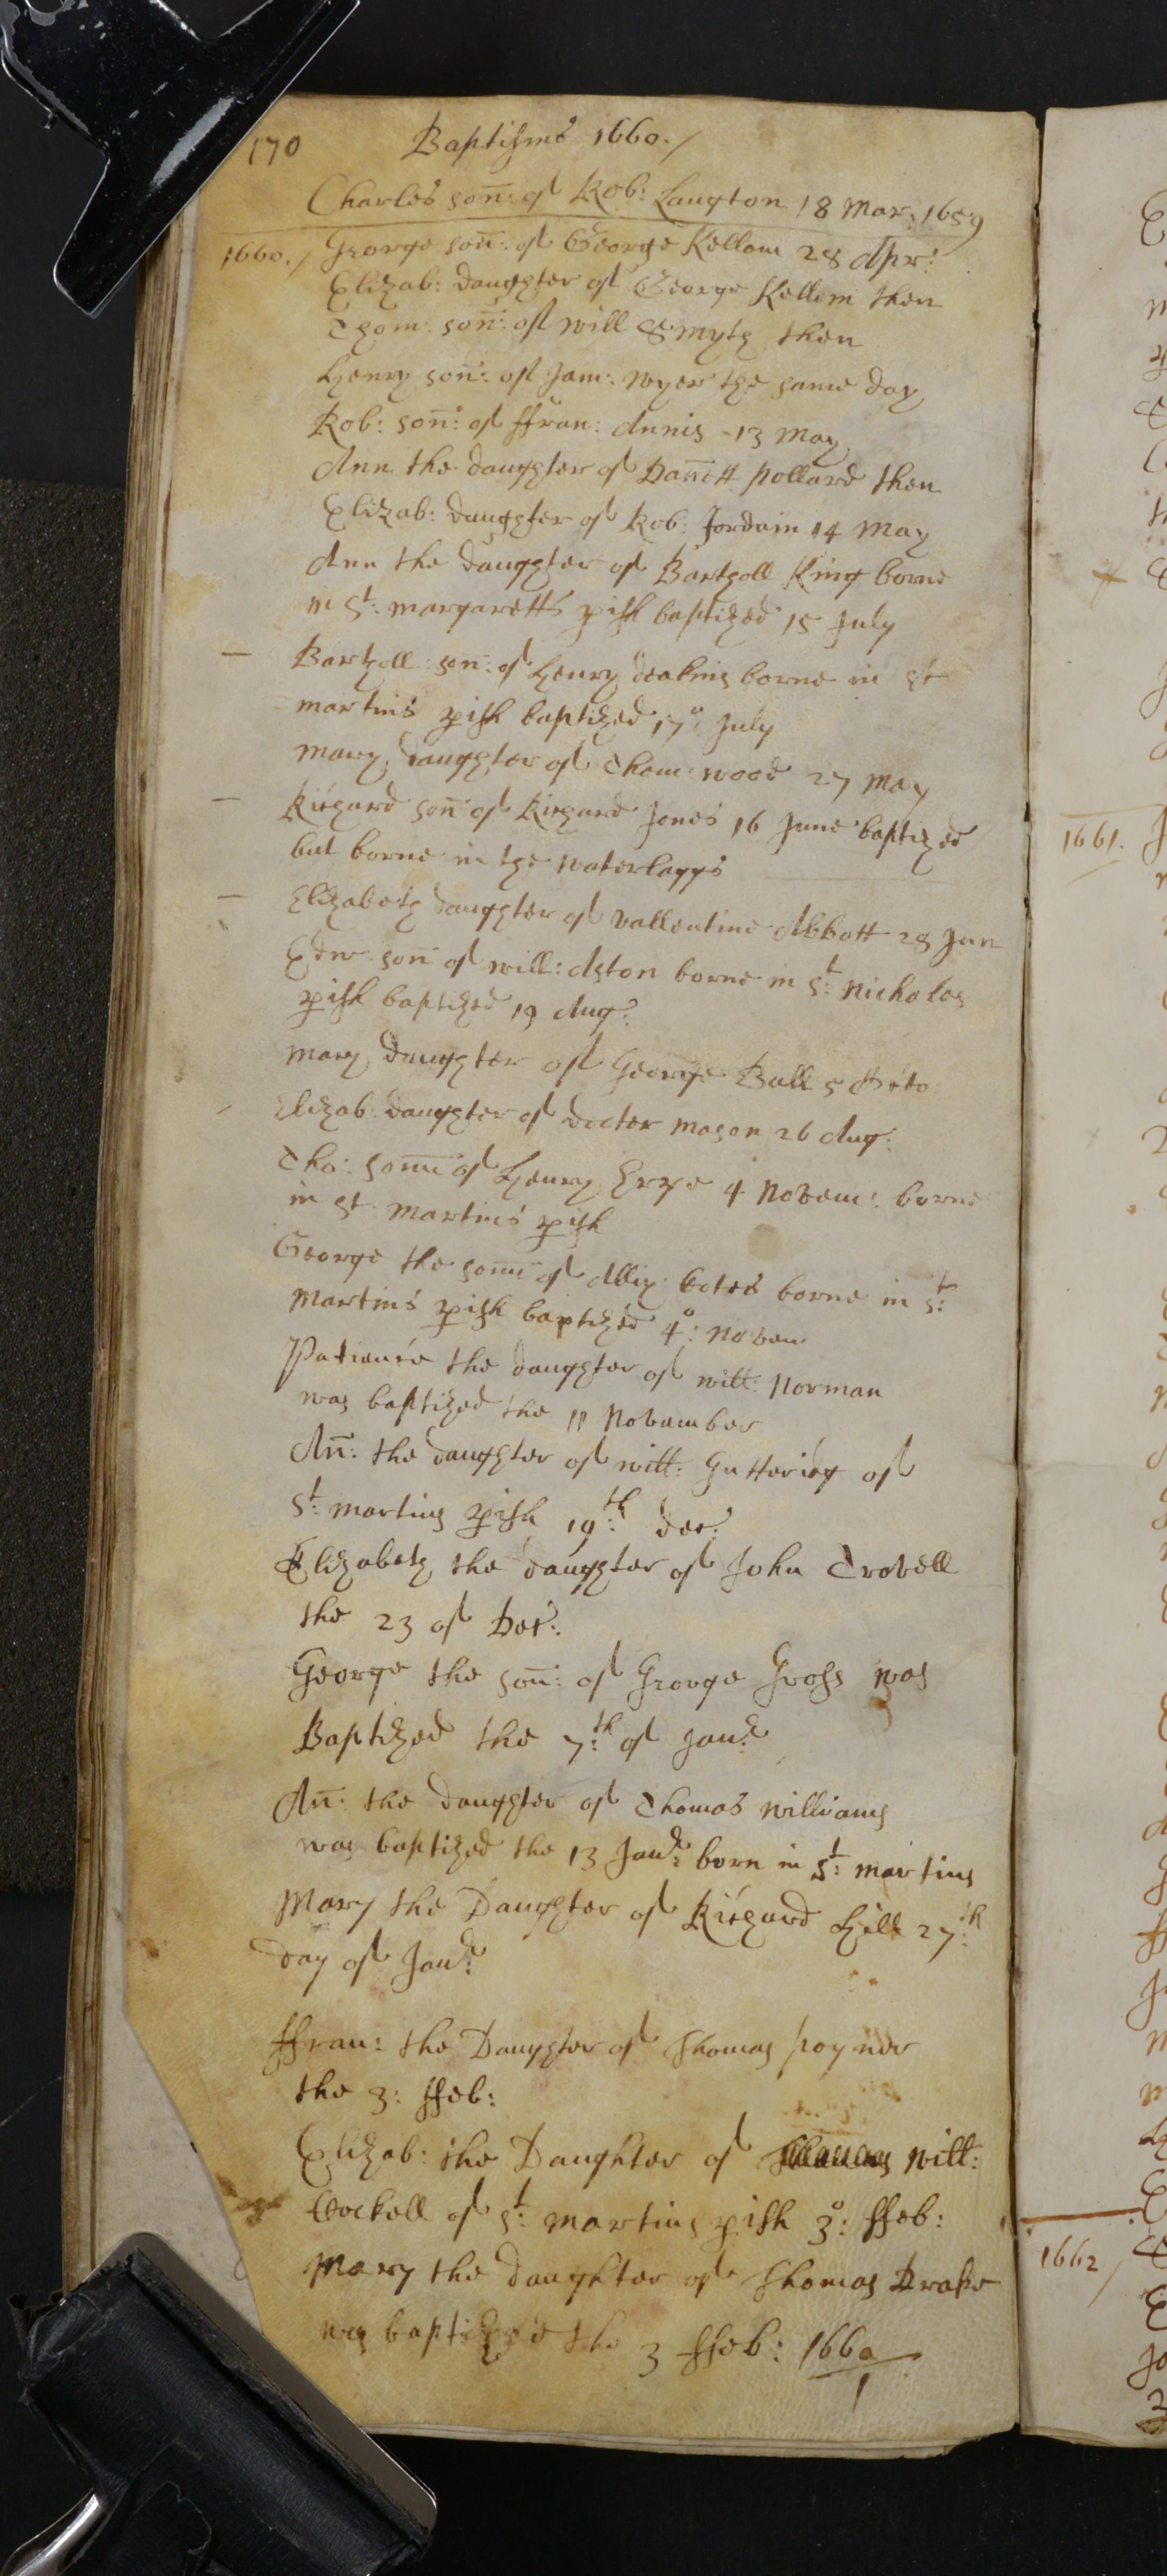 170 Baptisms 1660./
Charles son: of Rob: Langton 18 Mar. 1659
1660./ George son: of George Kellom 28 Apr:
Elizab: daughter of George Kellom then
Thom: son: of will Smyth then
Henry son: of Jam: wyer the same day
Rob: son: of ffran: Annis - 13 May
Ann the daughter of Daniell pollard then
Elizab: daughter of Rob: Jordain 14 May
Ann the daughter of Barthol King borne
in St: margaretts pish baptized 15 July
Barthol: son: of Henry deakins borne in st
martins pish baptized 17° July
mary daughter of Thom: wood 27 May
Richard son of Richard Jones 16 June baptized
but borne in the waterlaggs
Elizabeth daughter of vallentine Abbott 28 Jun
Edw son of will: Aston borne in St: Nicholas
pish baptized 19 Aug:
mary daughter of George Ball 5 Octo:
Elizab: daughter of docter mason 26 Aug:
Tho: sonne of Henry Erpe 4 Novem: borne
in st martins pish
George the sonne of Allix: Cotes borne in St:
Martins pish baptized 4°: Novem
Patience the daughter of will: Norman
was baptized the 11 November
An: the daughter of will: Gutteridg of
St: martins pish 19:th dec:
Elizabeth the daughter of John Trovell
the 23 of Dec:
George the son: of George Gross was
Baptized the 7:th of Jan:
An: the daughter of Thomas williams
was baptized the 13 Jan: born in St: martins
Mary the Daughter of Richard Hill 27:th
day of Jan:
ffran: the Daughter of Thomas poyner
the 3: ffeb:
Elizab: the Daughter of will:
Cockell of St: martins pish 3°: ffeb:
Mary the daughter of Thomas Drake
was baptized the 3 ffeb: 1660/1
1661.
1662/